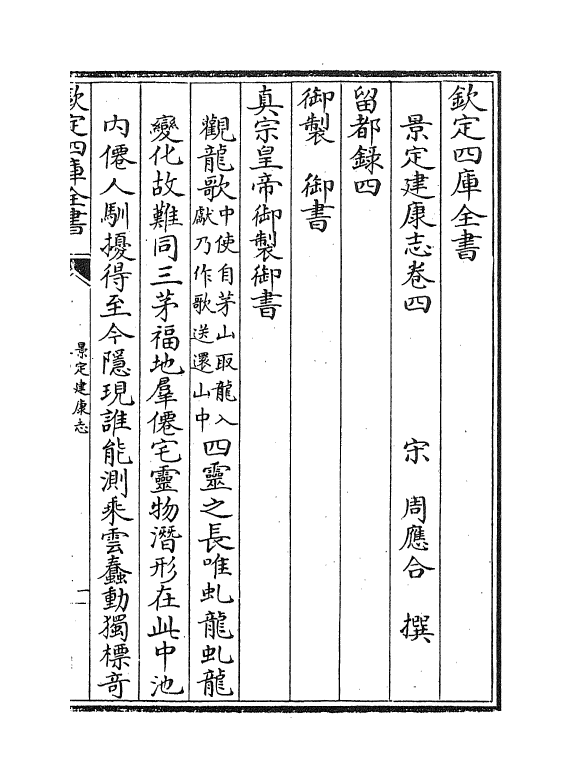 欽定四庫全書
景定建康志卷四
宋 周應合 撰
留都録四
御製 御書
真宗皇帝御製御書
觀龍歌中使自茅山取龍入獻乃作歌送還山中四靈之長唯虬龍虬龍
變化故難同三茅福地羣僊宅靈物潛形在此中池
内僊人馴擾得至今隱現誰能測乘雲蠢動獨標奇
欽定四庫全書
景定建康志